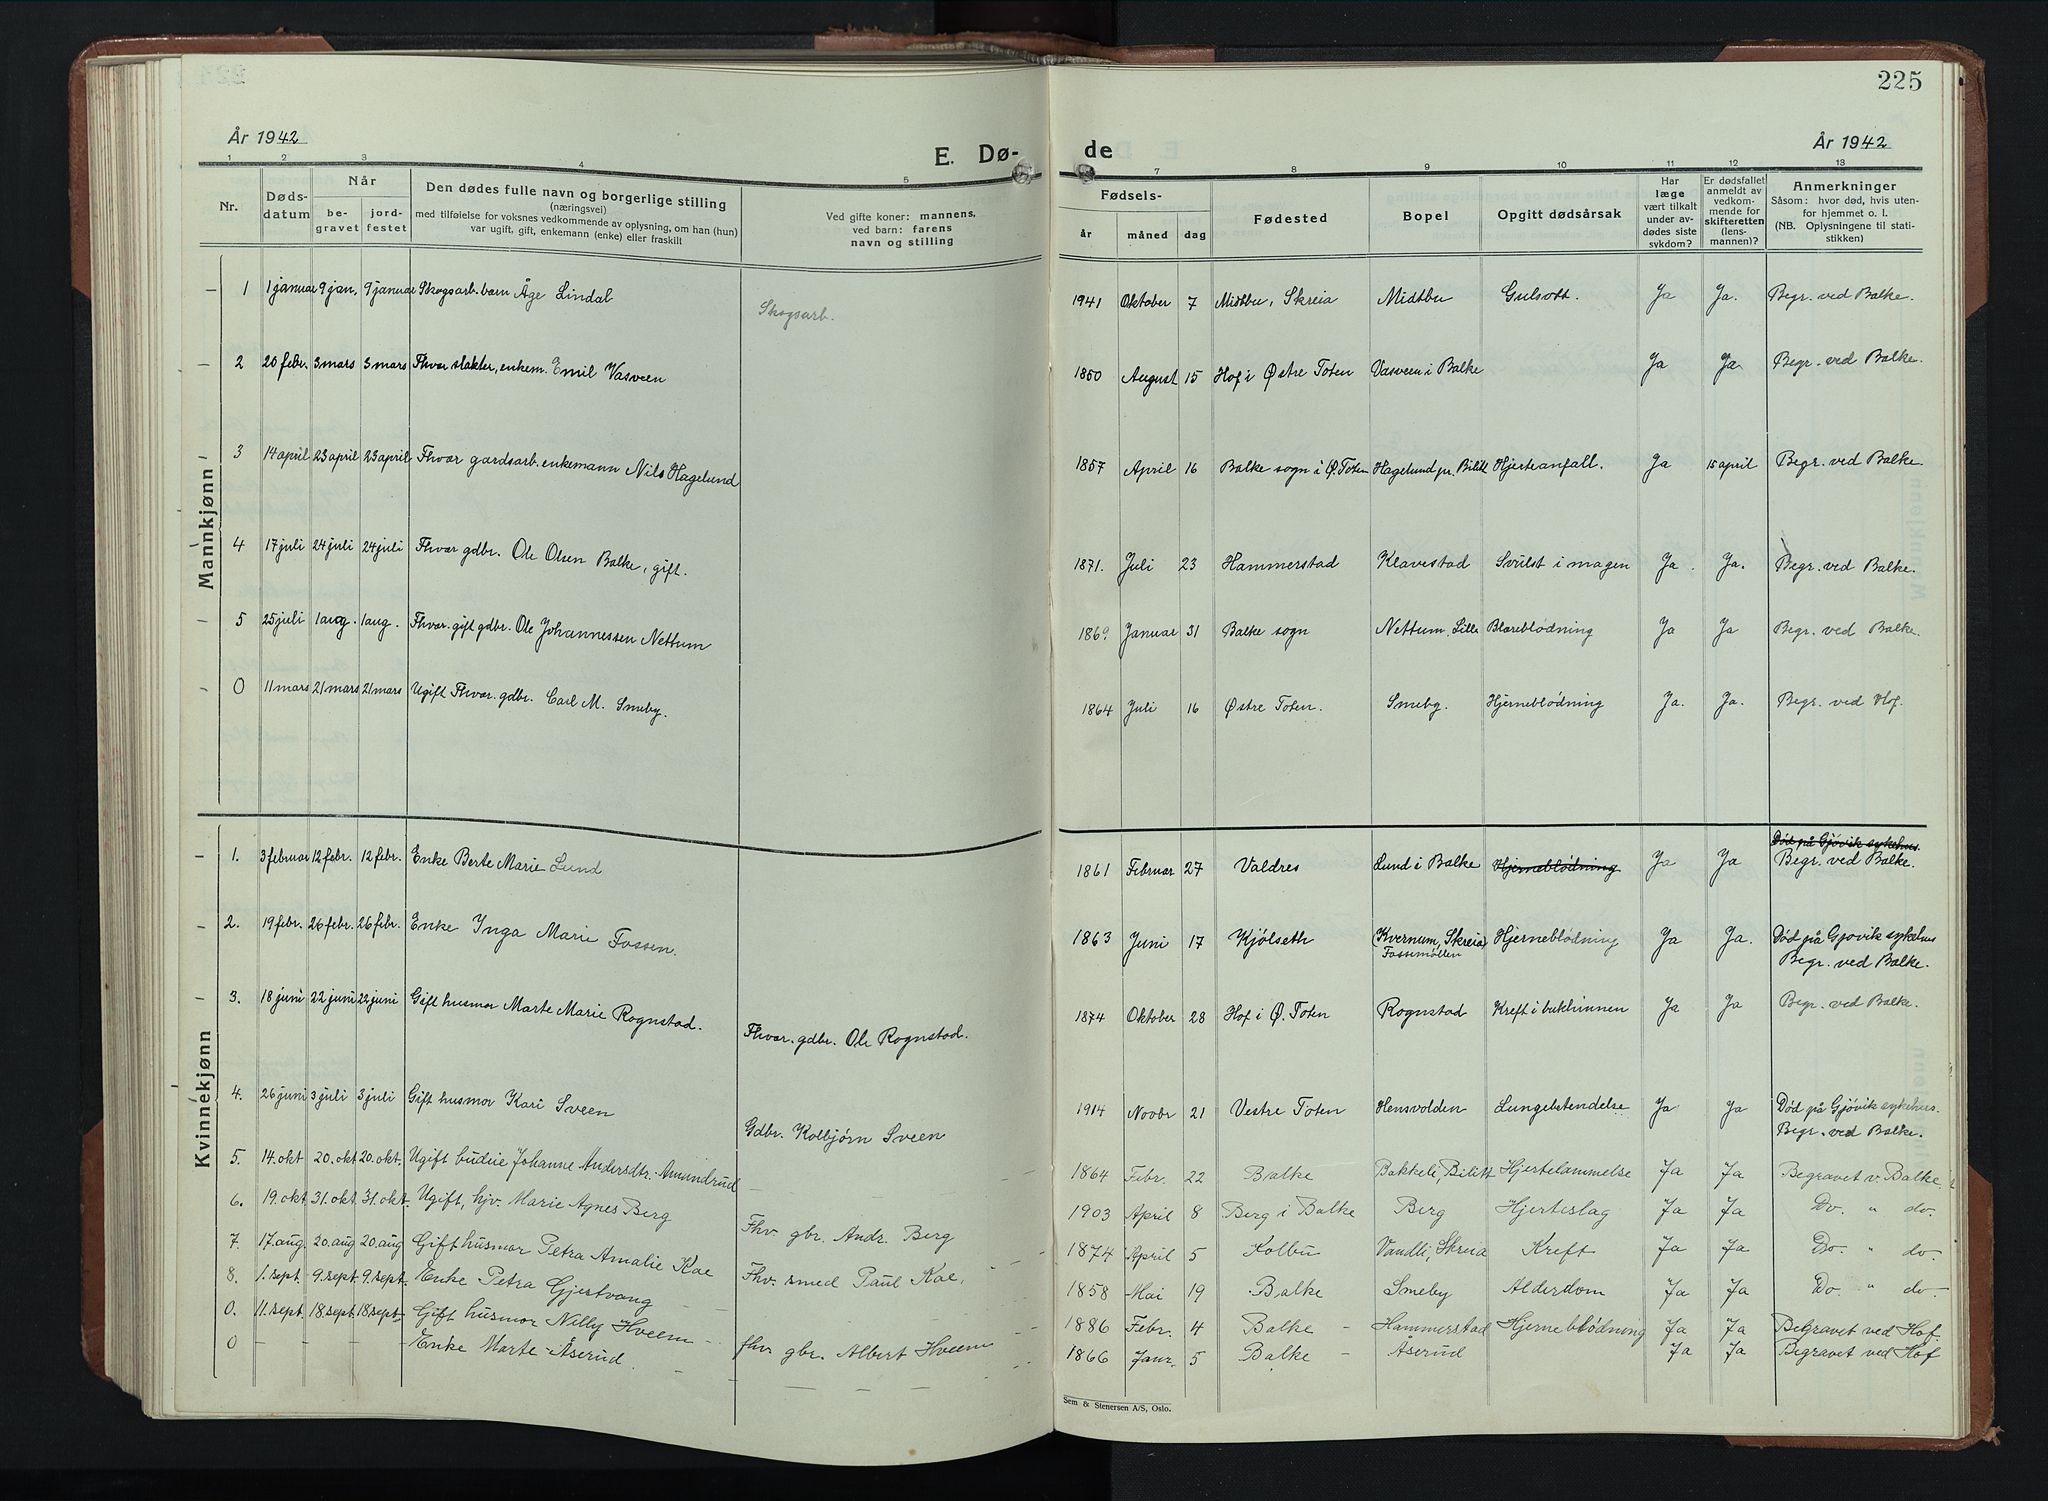 225
År 1942
E. Dø- de
År 1942
1 2 3 4 5 7 8 9 10 11 12 13
Nr.
Døds-
datum
Når
be-
gravet
jord-
festet
Den dødes fulle navn og borgerlige stilling
(næringsvei)
med tilføielse for voksnes vedkommende av oplysning, om han (hun)
var ugift, gift, enkemann (enke) eller fraskilt
Ved gifte koner: mannens,
ved barn: farens
navn og stilling
Fødsels-
år måned dag
Fødested
Bopel
Opgitt dødsårsak
Har
læge
vært tilkalt
under av-
dødes siste
sykdom?
Er dødsfallet
anmeldt av
vedkom-
mende for
skifteretten
(lens-
mannen)?
Anmerkninger
Såsom: hvor død, hvis uten-
for hjemmet o. l.
(NB. Oplysningene til stati-
stikken)
Mannkjønn
1 1 januar 9 jan. 9 januar Skogsarb. barn Åge Lindal Skogsarb. 1941 Oktober 7 Midtbu, Skreia Midtbu Gulsott. Ja Ja. Begr. ved Balke.
2 20 febr. 3 mars 3 mars Fhvar slakter, enkem. Emil Vasveen 1850 August 15 Hof i Østre Toten Vasveen i Balke Ja Ja. Begr. ved Balke.
3 14 april 23 april 23 april Fhvar gardsarb. enkemann Nils Hagelund 1857 April 16 Balke sogn i Ø. Toten Hagelund pr. Bilitt Hjerteanfall. Ja 15 april Begr. ved Balke.
4 17 juli 24 juli 24 juli Fhvar gdbr. Ole Olsen Balke, gift. 1871. Juli 23 Hammerstad Klavestad Svulst i magen Ja. Ja. Begr. ved Balke.
5 25 juli 1 aug. 1 aug. Fhvar. gift gdbr. Ole Johannessen Nettum 1869. Januar 31 Balke sogn Nettum, Lille Blæreblødning Ja Ja Begr. ved Balke.
0 11 mars 21 mars 21 mars Ugift Fhvar. gdbr. Carl M. Smeby. 1864 Juli 16 Østre Toten. Smeby. Hjerneblødning Ja. Ja. Begr. ved Hof.
Kvinnekjønn
Død på Gjøvik sykehus.
1. 3 februar 12 febr. 12 febr. Enke Berte Marie Lund 1861 Februar 27 Valdres Lund i Balke Hjerneblødning Ja Ja Begr. ved Balke.
2. 19 febr. 26 febr. 26 febr. Enke Inga Marie Fossen. 1863 Juni 17 Kjølseth (Kvernum, Skreia) Hjerneblødning Ja Ja. Død på Gjøvik sykehus
Fossemøllen Begr. ved Balke.
3. 18 juni 22 juni 22 juni Gift husmor Marte Marie Rognstad. Fhvar. gdbr. Ole Rognstad. 1874 Oktober 28 Hof i Ø. Toten Rognstad Kreft i bukhinnen Ja Ja Begr. ved Balke.
4. 26 juni 3 juli 3 juli Gift husmor Kari Sveen Gdbr. Kolbjørn Sveen 1914 Novbr 21 Vestre Toten Hensvolden Lungebetendelse Ja Ja Død på Gjøvik sykehus.
Begr. ved Balke.
5. 14. okt 20. okt 20. okt. Ugift budeie Johanne Andersdtr. Amundrud 1864 Febr. 22 Balke Bakkeli, Bilitt Hjertelammelse Ja Ja Begravet v. Balke.
6. 19. okt 31. okt. 31. okt. Ugift, hjv. Marie Agnes Berg Fhv. gbr. Andr. Berg 1903 April 8 Berg i Balke Berg Hjerteslag Ja Ja Do. " do.
7. 17. aug. 20. aug 20. aug Gift husmor Petra Amalie Koe Fhv. smed Paul Koe. 1874 April 5 Kolbu Vandli, Skreia Kreft Ja Ja Do. " do.
8. 1. sept. 9. sept. 9. sept. Enke Petra Gjestvang 1858 Mai 19 Balke Smeby Alderdom Ja Ja Do. " do.
0. 11. sept. 18. sept. 18 sept. Gift husmor Nelly Hveem fhv gbr. Albert Hveem 1886 Febr. 4 Balke Hammerstad Hjerneblødning Ja Ja Begravet ved Hof.
0 Enke Marte Åserud. 1866 Janr. 5 Balke Åserud Ja Ja Begravet ved Hof
Sem & Stenersen A/S, Oslo.